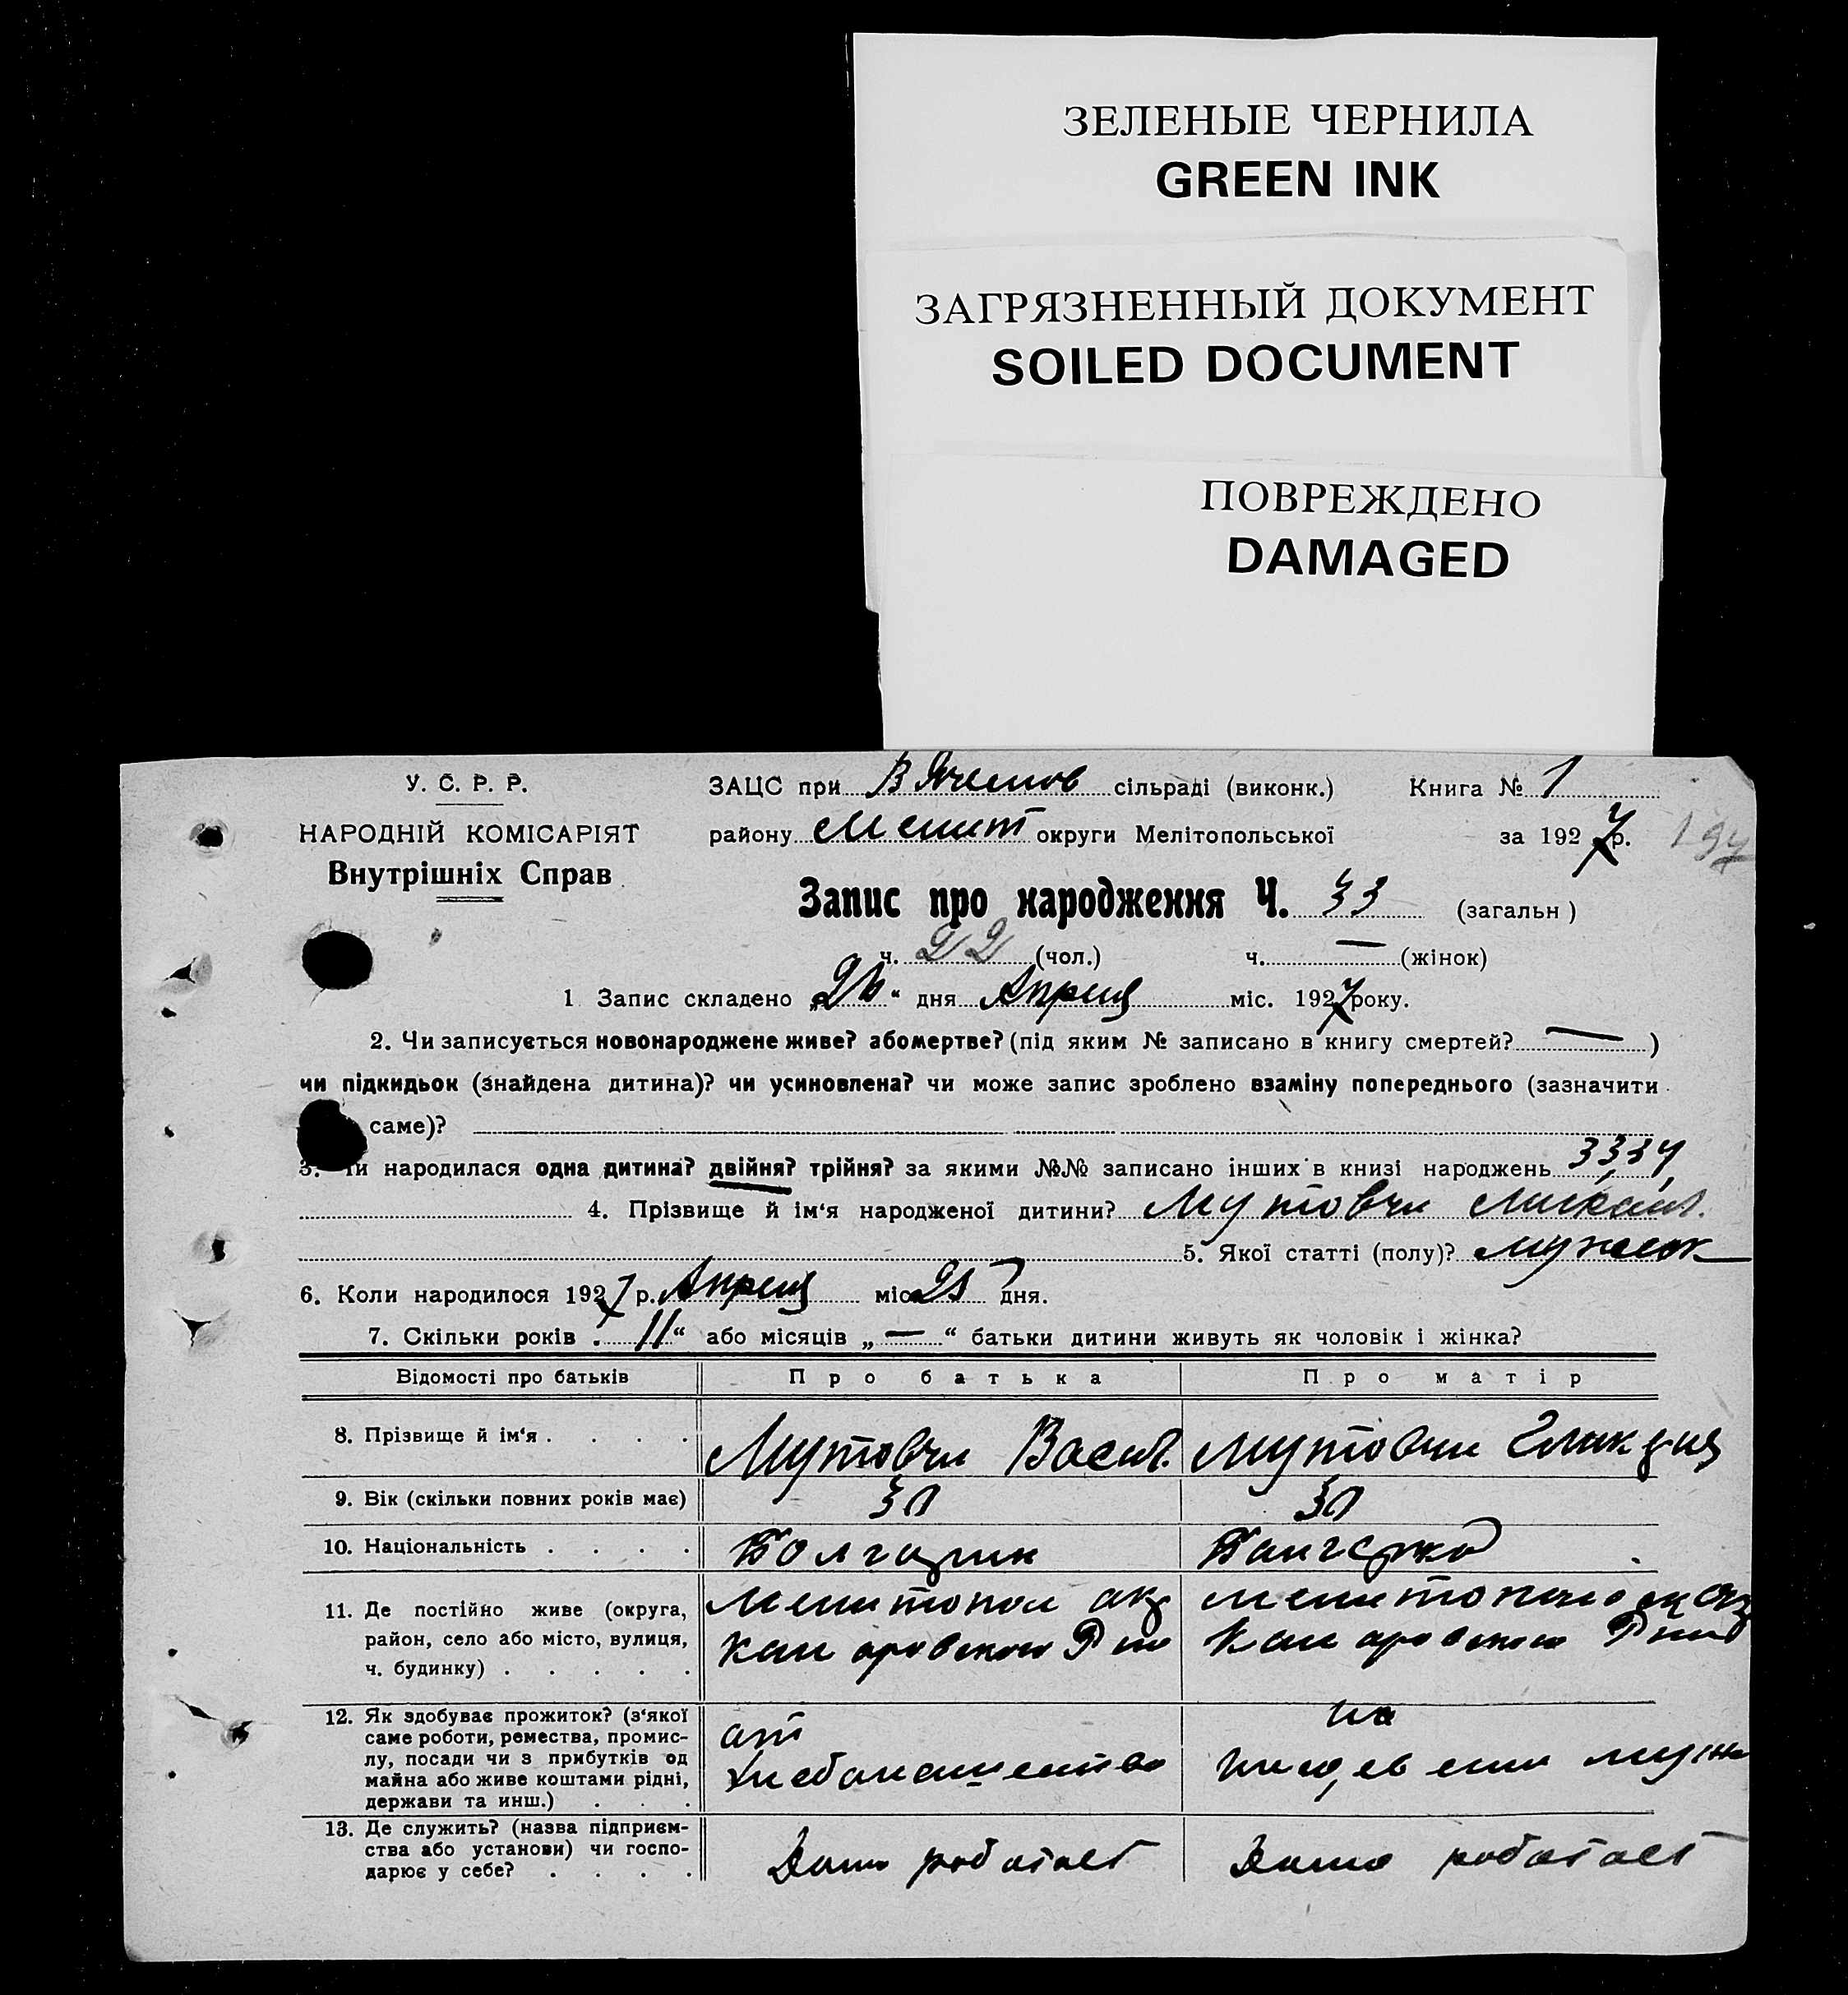 ЗЕЛЕНЫЕ ЧЕРНИЛА
GREEN INK
ЗАГРЯЗНЕННЫЙ ДОКУМЕНТ
SOILED DOCUMENT
ПОВРЕЖДЕНО
DAMAGED
У. С. Р. Р.
НАРОДНІЙ КОМІСАРІЯТ
Внутрішніх Справ
ЗАЦС при сільраді (виконк.) Книга № 1
району Мелит округи Мелітопольської за 1927 р. 197
Запис про народження Ч. 33 (загальн)
ч. 22 (чол.) ч. — (жінок)
1 Запис складено „26“ дня Апреля міс. 1927 року.
2. Чи записується новонароджене живе? або мертве? (під яким № записано в книгу смертей? — )
чи підкидьок (знайдена дитина)? чи усиновлена? чи може запис зроблено взаміну попереднього (зазначити
саме)?
3. Чи народилася одна дитина? двійня? трійня? за якими №№ записано інших в книзі народжень 33, 34
4. Прізвище й ім‘я народженої дитини? Мутовчи Михаил.
5. Якої статті (полу)? мужеск
6. Коли народилося 1927 р. Апреля міс. дня.
7. Скільки років „11“ або місяців „—“ батьки дитини живуть як чоловік і жінка?
Відомості про батьків Про батька Про матір
8. Прізвище й ім‘я . . . . Мутовчи Васил. Мутовчи
9. Вік (скільки повних років має) 30 30
10. Національність . . . . Болгарин Болгарка
11. Де постійно живе (округа, район, село або місто, вулиця, ч. будинку) . . . . . Мелитопол окр Мелитопольск окр
12. Як здобуває прожиток? (з‘якої саме роботи, ремества, промислу, посади чи з прибутків од майна або живе коштами рідні, держави та инш.) . . . от хлебопашества на иждевении мужа
13. Де служить? (назва підприємства або установи) чи господарює у себе? . . . . Дома работает Дома работает